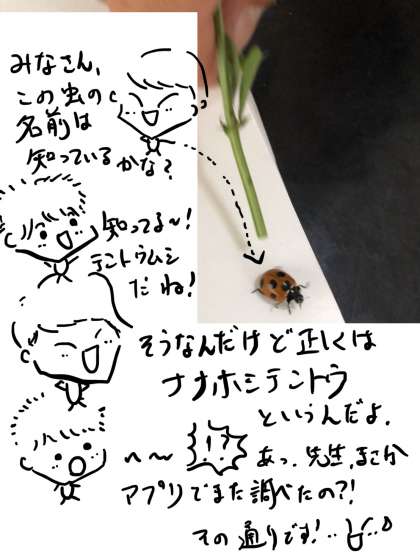 みなさん、
この虫の
名前は
知っているかな?
知ってる〜!
テントウムシ
だね!
そうなんだけど正しくは
ナナホシテントウ
というんだよ.
〜〜 !?
あっ.先生.まさか
アプリでまた調べたの?!
その通りです!...